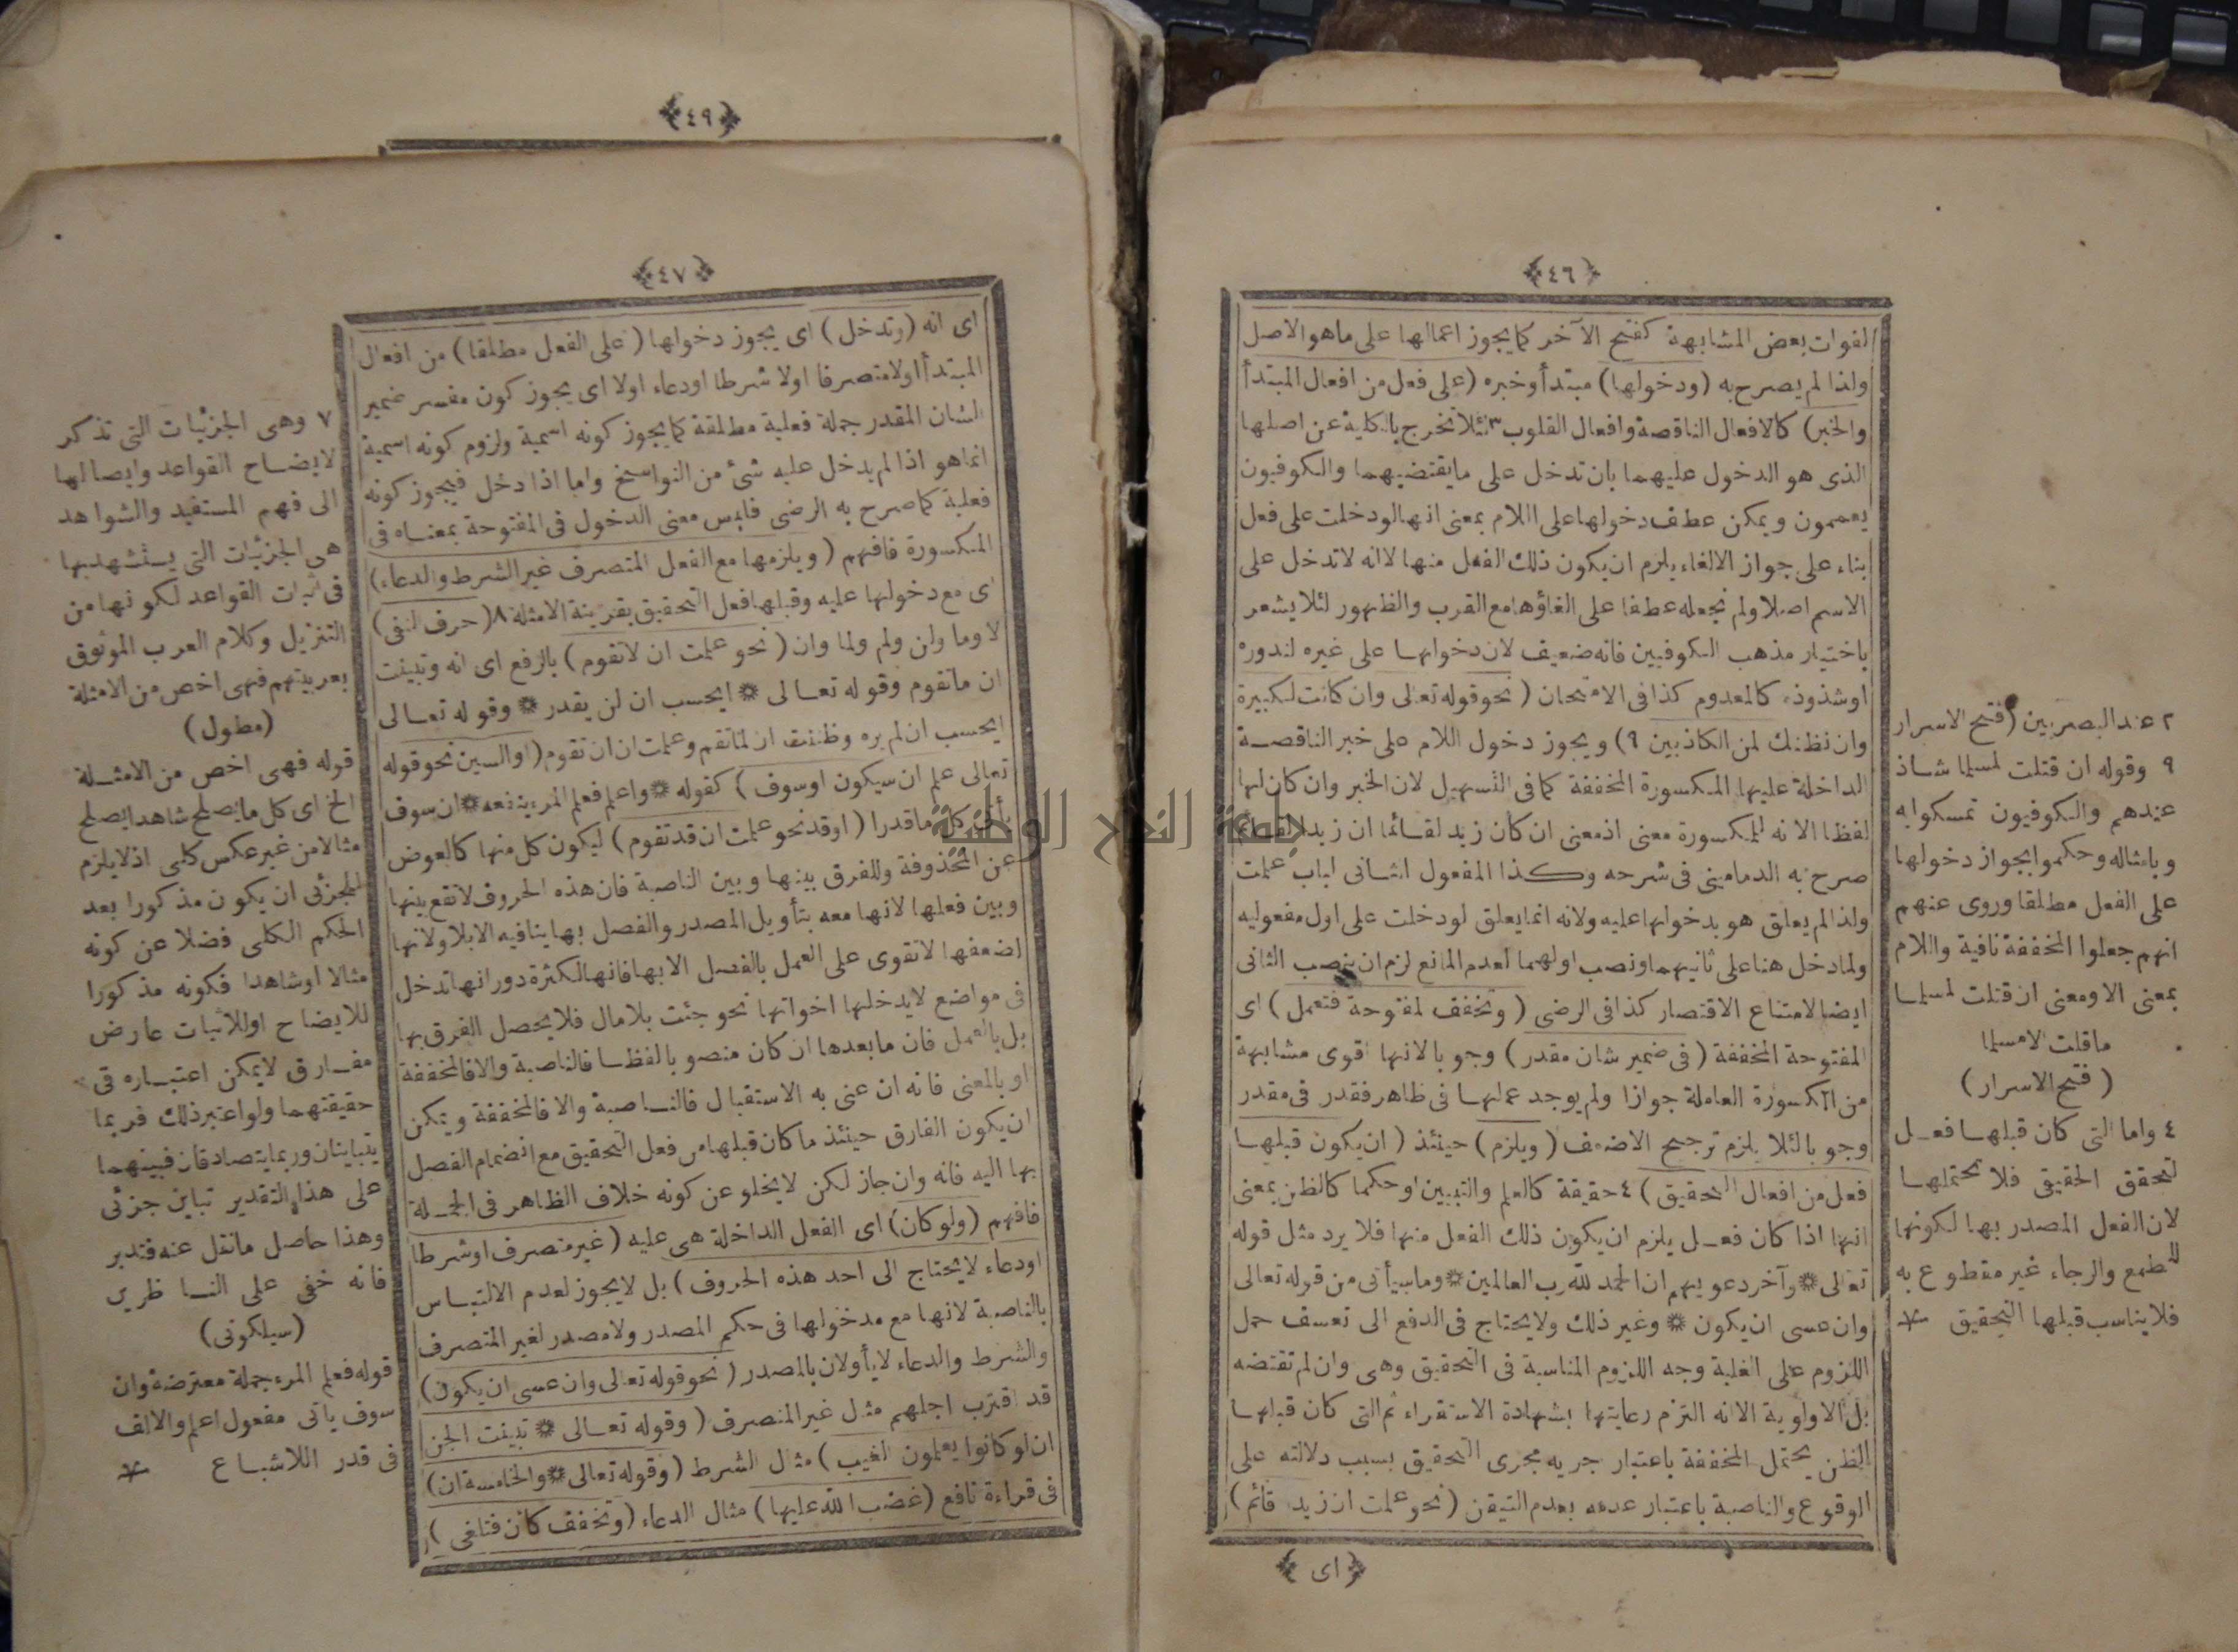 ﴿٤٦﴾
لفوات بعض المشابهة كفتح الآخر كما يجوز اعمالها على ما هو الاصل
ولذا لم يصرح به (ودخولها) مبتدأ وخبره (على فعل من افعال المبتدأ
والخبر) كالافعال الناقصة وافعال القلوب ٣ لئلا تخرج بالكلية عن اصلها
الذى هو الدخول عليهما بان تدخل على ما يقتضيهما والكوفيون
يعممون ويمكن عطف دخولها على اللام بمعنى انها لو دخلت على فعل
بناء على جواز الالغاء يلزم ان يكون ذلك الفعل منها لا انه لا تدخل على
الاسم اصلا ولم نجعله عطفا على الغاؤها مع القرب والظهور لئلا يشعر
باختيار مذهب الكوفيين فانه ضعيف لان دخولها على غيره لندوره
اوشذوذه كالمعدوم كذا فى الامتحان (نحو قوله تعالى وان كانت لكبيرة
وان نظنك لمن الكاذبين ٩) ويجوز دخول اللام على خبر الناقصة
الداخلة عليها المكسورة المخففة كما فى التسهيل لان الخبر وان كان لها
لفظا الا انه للمكسورة معنى اذ معنى ان كان زيد لقائما ان زيدا لقائم
صرح به الدمامينى فى شرحه وكذا المفعول الثانى لباب علمت
ولذا لم يعلق هو بدخولها عليه ولانه انما يعلق لو دخلت على اول مفعوليه
ولما دخل هنا على ثانيهما ونصب اولهما لعدم المانع لزم ان ينصب الثانى
ايضا لامتناع الاقتصار كذا فى الرضى (وتخفف المفتوحة فتعمل) اى
المفتوحة المخففة (فى ضمير شان مقدر) وجوبا لانها اقوى مشابهة
من المكسورة العاملة جوازا ولم يوجد عملها فى ظاهر فقدر فى مقدر
وجوبا لئلا يلزم ترجيح الاضعف (ويلزم) حينئذ (ان يكون قبلها
فعل من افعال التحقيق) ٤ حقيقة كالعلم والتبيين او حكما كالظن بمعنى
انها اذا كان فعل يلزم ان يكون ذلك الفعل منها فلا يرد مثل قوله
تعالى ۞ وآخر دعويهم ان الحمد لله رب العالمين ۞ وما سيأتى من قوله تعالى
وان عسى ان يكون ۞ وغير ذلك ولا يحتاج فى الدفع الى تعسف حمل
اللزوم على الغلبة وجه اللزوم المناسبة فى التحقيق وهى وان لم تقتضه
بل الاولوية الا انه التزم رعايتها بشهادة الاستقراء ثم التى كان قبلها
الظن يحتمل المخففة باعتبار جريه مجرى التحقيق بسبب دلالته على
الوقوع والناصبة باعتبار عدمه بعدم التيقن (نحو علمت ان زيد قائم)
﴿اى﴾
٢ عند البصريين (فتح الاسرار
٩ وقوله ان قتلت لمسلما شاذ
عندهم والكوفيون تمسكوا به
وبامثاله وحكموا بجواز دخولها
على الفعل مطلقا وروى عنهم
انهم جعلوا المخففة نافية واللام
بمعنى الا ومعنى ان قتلت لمسلما
ما قلت الا مسلما
(فتح الاسرار)
٤ واما التى كان قبلها فعل
التحقق الحقيقى فلا تحتملها
لان الفعل المصدر بها لكونها
للطمع والرجاء غير مقطوع به
فلا يناسب قبلها التحقيق
﴿٤٩﴾
﴿٤٧﴾
اى انه (وتدخل) اى يجوز دخولها (على الفعل مطلقا) من افعال
المبتدأ اولا متصرفا اولا شرطا او دعاء اولا اى يجوز كون مفسر ضمير
الشان المقدر جملة فعلية مطلقة كما يجوز كونه اسمية ولزوم كونه اسمية
انما هو اذا لم يدخل عليه شئ من النواسخ واما اذا دخل فيجوز كونه
فعلية كما صرح به الرضى فليس معنى الدخول فى المفتوحة بمعناه فى
المكسورة فافهم (ويلزمها مع الفعل المتصرف غير الشرط والدعاء)
اى مع دخولها عليه وقبلها فعل التحقيق بقرينة الامثلة ٨ (حرف النفى)
لا وما ولن ولم ولما وان (نحو علمت ان لا تقوم) بالرفع اى انه وتبينت
ان ما تقوم وقوله تعالى ۞ ايحسب ان لن يقدر ۞ وقوله تعالى
ايحسب ان لم يره وظننت ان لما تقم وعلمت ان ان تقوم (او السين نحو قوله
تعالى علم ان سيكون او سوف) كقوله ۞ واعلم فعلم المرء ينفعه ۞ ان سوف
يأتى كل ما قدرا (او قد نحو علمت ان قد تقوم) ليكون كل منها كالعوض
عن المحذوفة وللفرق بينها وبين الناصبة فان هذه الحروف لا تقع بينها
وبين فعلها لانها معه بتأويل المصدر والفصل بها ينافيه الا بلا ولانها
لضعفها لا تقوى على العمل بالفصل الا بها فانها لكثرة دورانها تدخل
فى مواضع لا يدخلها اخواتها نحو جئت بلا مال فلا يحصل الفرق بها
بل بالعمل فان ما بعدها ان كان منصوبا لفظا فالناصبة والا فالمخففة
او بالمعنى فانه ان عنى به الاستقبال فالناصبة والا فالمخففة ويمكن
ان يكون الفارق حينئذ ما كان قبلها من فعل التحقيق مع انضمام الفصل
بها اليه فانه وان جاز لكن لا يخلو عن كونه خلاف الظاهر فى الجملة
فافهم (ولو كان) اى الفعل الداخلة هى عليه (غير متصرف او شرطا
او دعاء لا يحتاج الى احد هذه الحروف) بل لا يجوز لعدم الالتباس
بالناصبة لانها مع مدخولها فى حكم المصدر ولا مصدر لغير المتصرف
والشرط والدعاء لا يأولان بالمصدر (نحو قوله تعالى وان عسى ان يكون)
قد اقترب اجلهم مثل غير المتصرف (وقوله تعالى ۞ تبينت الجن
ان لو كانوا يعلمون الغيب) مثال الشرط (وقوله تعالى ۞ والخامسة ان)
فى قراءة نافع (غضب الله عليها) مثال الدعاء (وتخفف كأن فتلغى)
٧ وهى الجزئيات التى تذكر
لايضاح القواعد وايصالها
الى فهم المستفيد والشواهد
هى الجزئيات التى يستشهد بها
فى اثبات القواعد لكونها من
التنزيل وكلام العرب الموثوق
بعربيتهم فهى اخص من الامثلة
(مطول)
قوله فهى اخص من الامثلة
الخ اى كل ما يصلح شاهدا يصلح
مثالا من غير عكس كلى اذ لا يلزم
للجزئى ان يكون مذكورا بعد
الحكم الكلى فضلا عن كونه
مثالا او شاهدا فكونه مذكورا
للايضاح او للاثبات عارض
مفارق لا يمكن اعتباره فى
حقيقتهما ولو اعتبر ذلك فربما
يتباينان وربما يتصادقان فبينهما
على هذا التقدير تباين جزئى
وهذا حاصل ما نقل عنه فتدبر
فانه خفى على الناظرين
(سيلكوتى)
قوله فعلم المرء جملة معترضة وان
سوف ياتى مفعول اعلم والالف
فى قدر اللاشباع
جامعة النجاح الوطنية